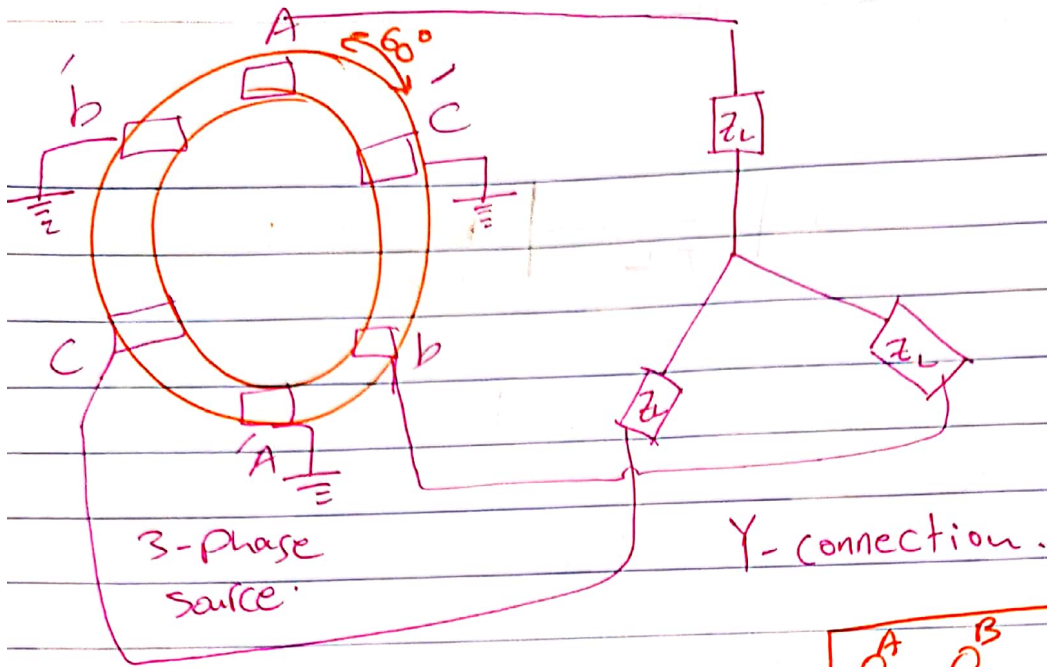 A
60°
b'
C'
Z_L
C
b
Z_L
Z_L
A'
3-phase
source.
Y-connection.
A B